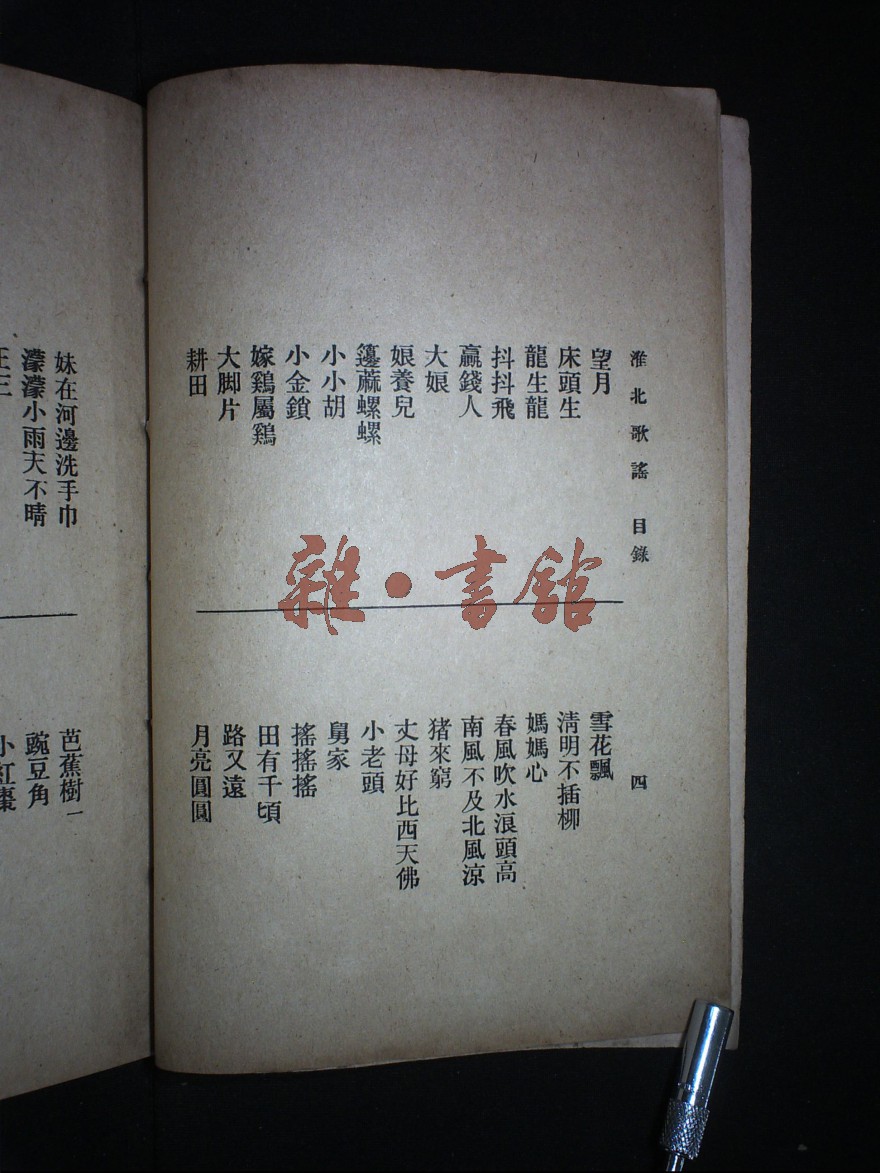 淮北歌謠 目錄 四
望月
床頭生
龍生龍
抖抖飛
贏錢人
大娘
娘養兒
籩蔴螺螺
小小胡
小金鎖
嫁鷄屬鷄
大脚片
耕田
雪花飄
淸明不插柳
媽媽心
春風吹水浪頭高
南風不及北風涼
猪來窮
丈母好比西天佛
小老頭
舅家
搖搖搖
田有千頃
路又遠
月亮圓圓
妹在河邊洗手巾
濛濛小雨天不晴
芭蕉樹
豌豆角
小紅棗
雜·書館